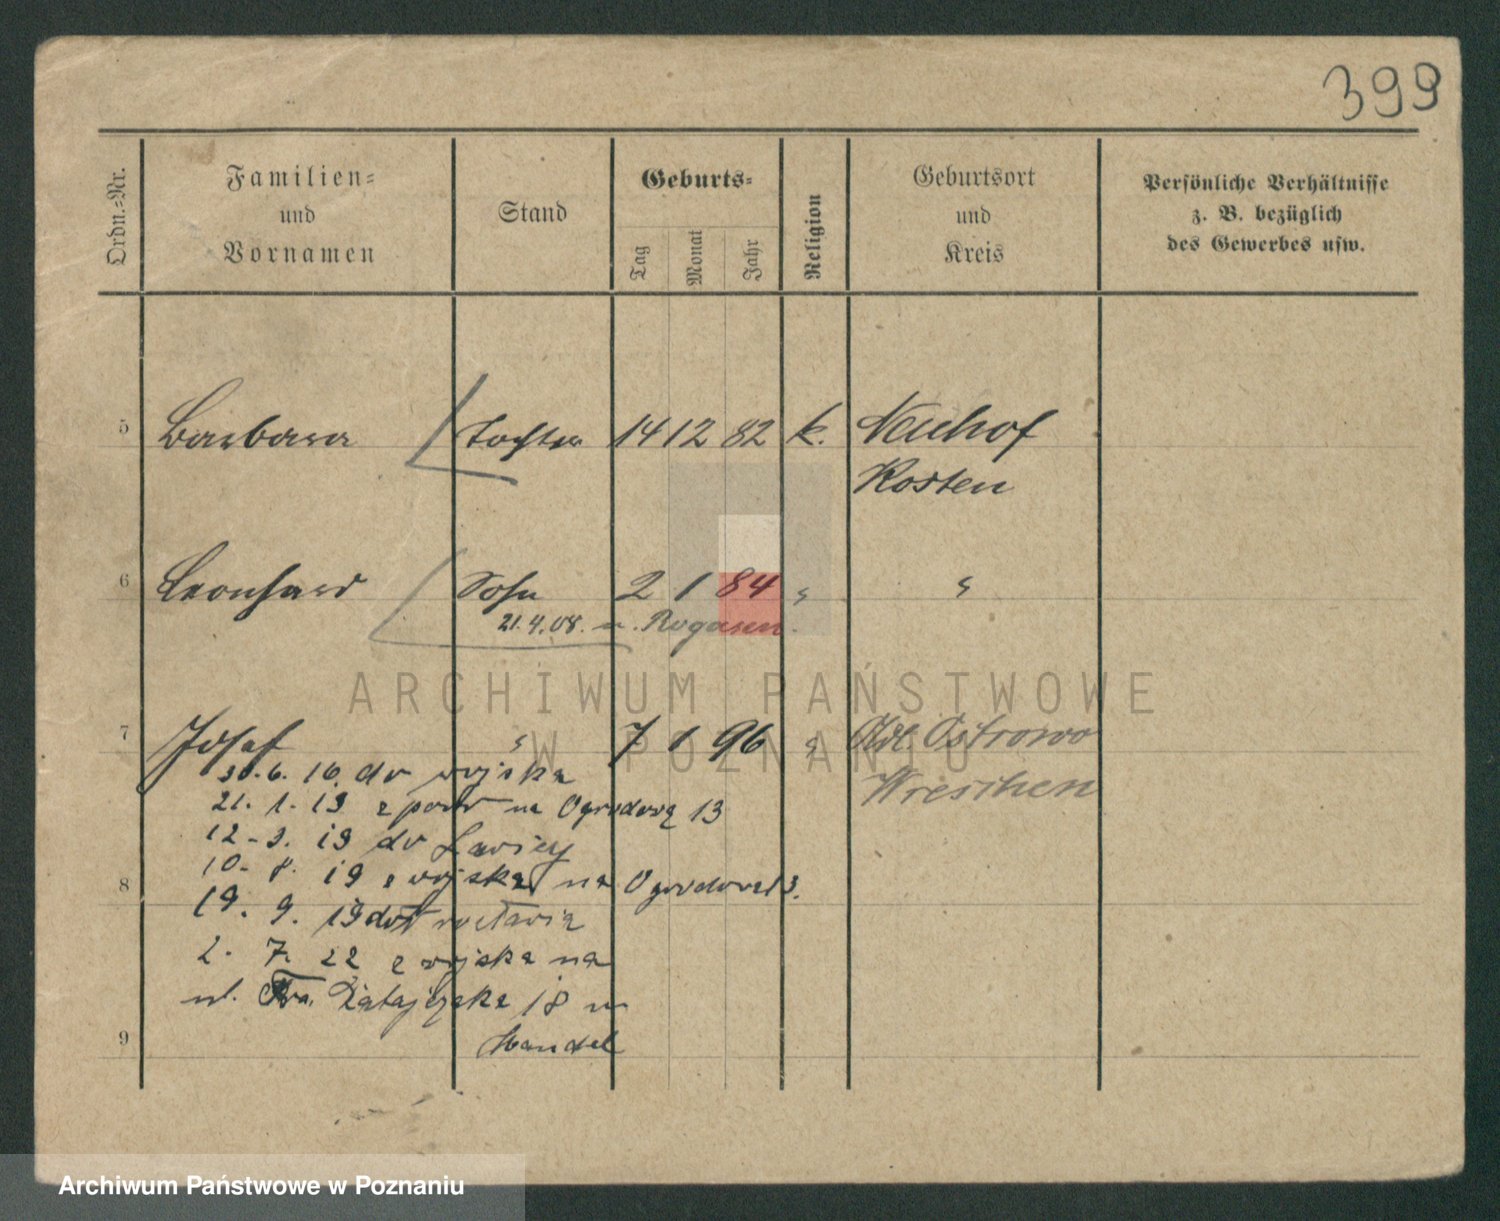 399
Ordn.-Nr.
Familien-
und
Vornamen
Stand
Geburts-
Tag
Monat
Jahr
Religion
Geburtsort
und
Kreis
Persönliche Verhältnisse
z. B. bezüglich
des Gewerbes usw.
5 Barbara Tochter 14 12 82 k. Neuhof
Kosten
6 Leonhard Sohn 2 1 84 " "
21.4.08. n. Rogasen.
7 Josef " 7 1 96 " Adl. Ostrowo
Wreschen
6. 16. do wojska
21. 1. 19 z na Ogrodową 13
12-3. 19 do Ławicy
8
10-8. 19 z wojska na Ogrodową 13.
19. 9. 19 do
2. 7. 22 z wojska na
ul. Fra. Ratajczaka 18 w
9
Handel
ARCHIWUM PAŃSTWOWE
W POZNANIU
Archiwum Państwowe w Poznaniu